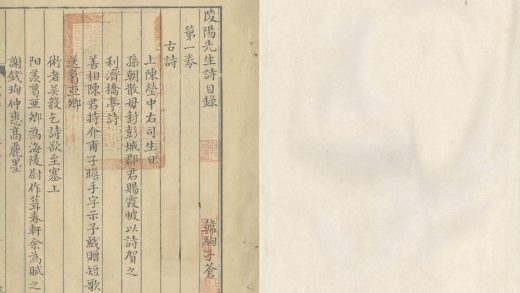 陵陽先生詩目錄
第一券
韓駒子蒼
古詩
上陳瑩中右司生日
孫朝散母封彭城郡君賜霞帔以詩賀之
利濟橋亭詩
善相陳君持介甫子瞻手字示予戲贈短歌
送葛亞卿
術者吳毅乞詩欲至塞上
陽羨葛亞卿為海陵尉作葺春軒余為賦之
謝錢珣仲惠高麗墨